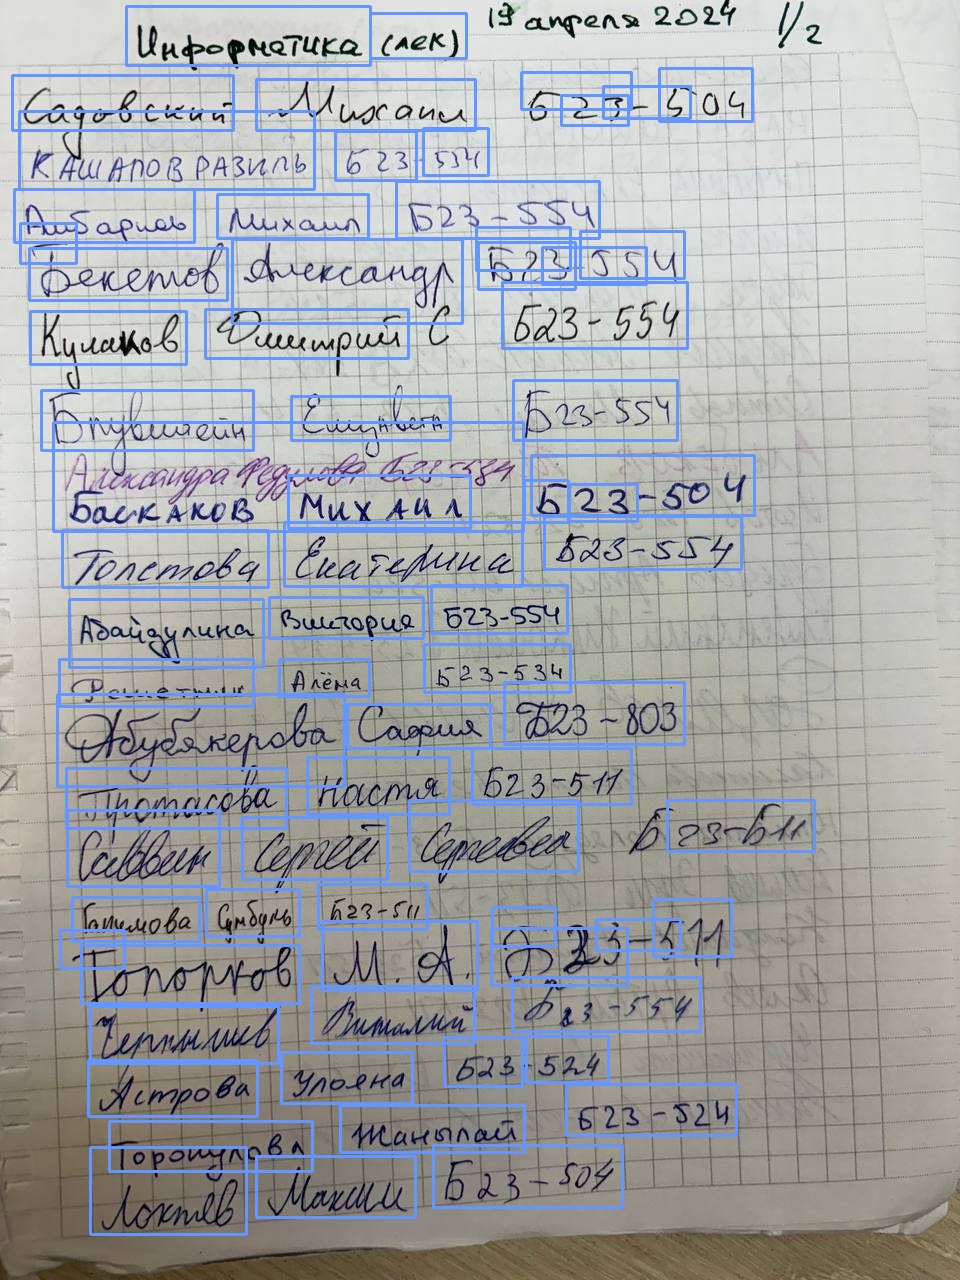 Информатика (лек) 19 апреля 2024 1/2
Садовский Михаил Б23-504
КАШАПОВ РАЗИЛЬ Б23-534
Михаил Б23-554
Бекетов Александр Б23-554
Кулаков Дмитрий С Б23-554
Б23-554
Александра Федулова Б23-534
Баскаков Михаил Б23-504
Толстова Екатерина Б23-554
Абайдулина Виктория Б23-554
Решетник Алёна Б23-534
Абубякерова Сафия Б23-803
Протасова Настя Б23-511
Саввин Сергей Б23-Б11
Сумбуль Б23-511
Топорков М. А. Б23-511
Чернышев Виталий Б23-554
Астрова Ульяна Б23-524
Жанылай Б23-524
Локтев Максим Б23-504